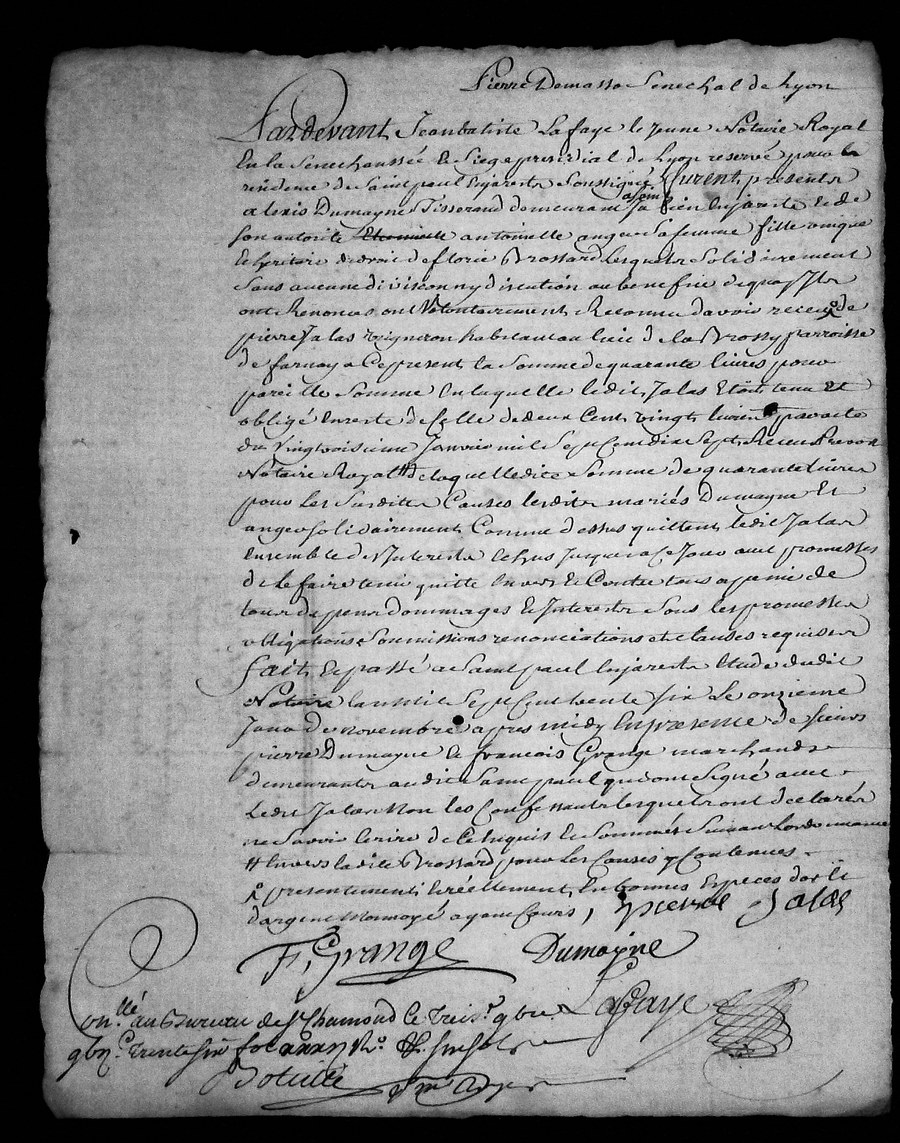 Pierre Demasso Senechal de Lyon
Pardevant Jean batiste Lafaye le jeune Notaire Royal
En la Senechaussée & Siege presidial de Lyon reservé pour la
residence de Saint paul Enjarests Soussigné. furent presents
alexis Dumayne Tisserand demeurant a Saint Jullien Enjarests & de
son autorité antoinette ange sa femme fille unique
& heritiere de droit de florie Brossard lesquels Solidairement
Sans aucune division ny discution au benefice dequoy Ils
ont Renoncés ont Volontairement Reconnu d'avoir receu de
pierre Jalas Vigneron habitant au lieu de la Brossy parroisse
de farnay a Ce present la Somme de quarante livres pour
pareille Somme En laquelle ledit Jalas Etoit tenu Et
obligé En reste de Celle de deux Cent vingt livres par acte
du Vingt troisieme Janvier mil Sept Cent dix Sept Receu
Notaire Royal # de laquelle ditte Somme de quarante livres
pour les Surdittes Causes lesdits mariés Dumayne Et
ange Solidairement Comme dessus quittent ledit Jalas
Ensemble des Interests Echus Jusques a Ce Jour avec promesses
de le faire tenir quitte Envers & Contre tous a peine de
tous depens dommages & Interests Sous les promesses
obligations Soumissions renonciations et clauses requises
fait & passé a Saint paul Enjarests Etude dudit
Notaire lan mil Sept Cent trente Six Le onzieme
Jour de novembre apres midy En presence de Sieurs
pierre Dumayne & francois Grange marchands
demeurants audit Saint paul qui ont Signé avec
Ledit Jalas Non les Confessants lesquels ont declarés
ne Savoir Ecrire de Ce Enquis & Sommés Suivant Lordonnance
# Envers ladite Brossard pour les Causes y Contenues
presentement & réellement En bonnes Especes dor &
dargent Monnoyé ayant Cours, pierre Jalas
F. Grange Dumayne
Lafaye
Con.llé au Bureau de St Chamond Ce
9b.re trente Six fol